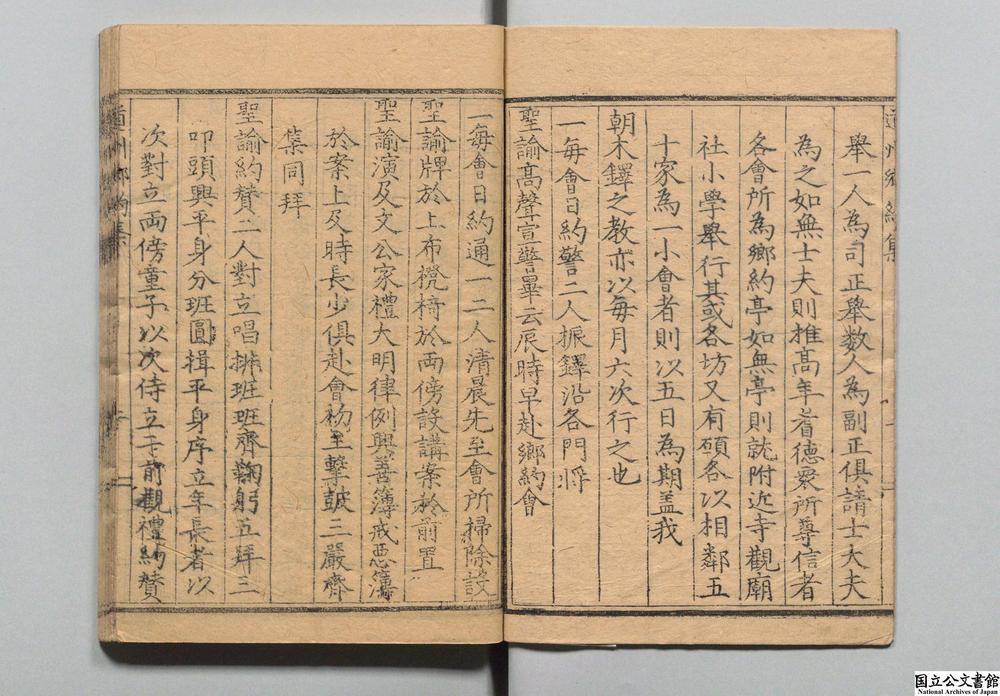 舉一人為司正舉数人為副正俱請士大夫
為之如無士夫則推髙年耆德衆所尊信者
各會所為鄉約亭如無亭則就附近寺觀廟
社小學舉行其或各坊又有願各以相鄰五
十家為一小會者則以五日為期盖我
朝木鐸之教亦以每月六次行之也
一每會日約警二人振鐸沿各門將
聖諭髙聲宣警畢云辰時早赴鄉約會
一每會日約通一二人清晨先至會所掃除設
聖諭牌於上布櫈椅於両傍設講案於前置
聖諭演及文公家禮大明律例興善簿戒惡簿
於案上及時長少俱赴會初至擊皷三嚴齊
集同拜
聖諭約賛二人對立唱排班班齊鞠躬五拜三
叩頭興平身分班圓揖平身序立年長者以
次對立両傍童子以次侍立于前觀禮約賛
国立公文書館
National Archives of Japan